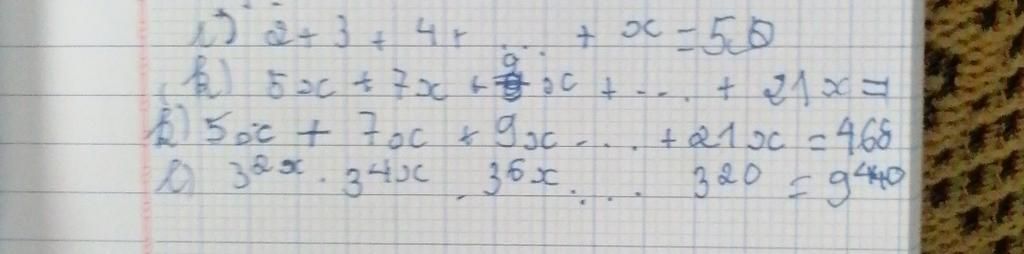 1) 2 + 3 + 4 + ... + x = 50
k) 5x + 7x + 9x + ... + 21x =
k) 5x + 7x + 9x ... + 21x = 468
l) 3^2x . 3^4x . 3^6x . ... 3^20 = 9^440